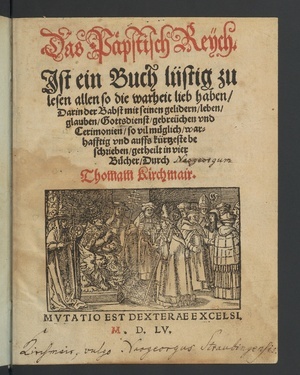 Das Päpstisch Reych.
Ist ein Buch lüstig zu
lesen allen so die warheit lieb haben/
Darin der Babst mit seinen gelidern/leben/
glauben/Gottsdienst/gebreüchen vnd
Cerimonien/so vil müglich/war-
hafftig vnd auffs kürtzeste be
schrieben/getheilt in vier
Bücher/Durch Naogeorgum
Thomam Kirchmair.
MVTATIO EST DEXTERAE EXCELSI.
M. D. LV.
Kirchmair, vulgo Naogeorgus Straubingensis.